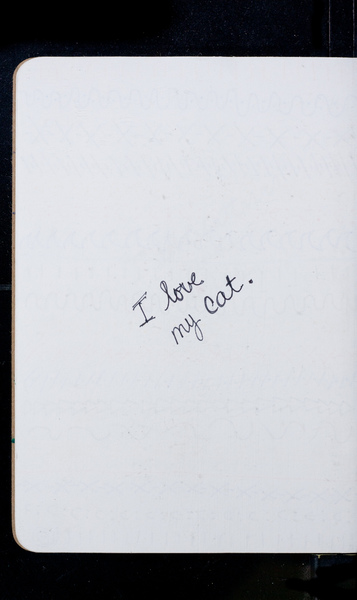 I love
my cat.